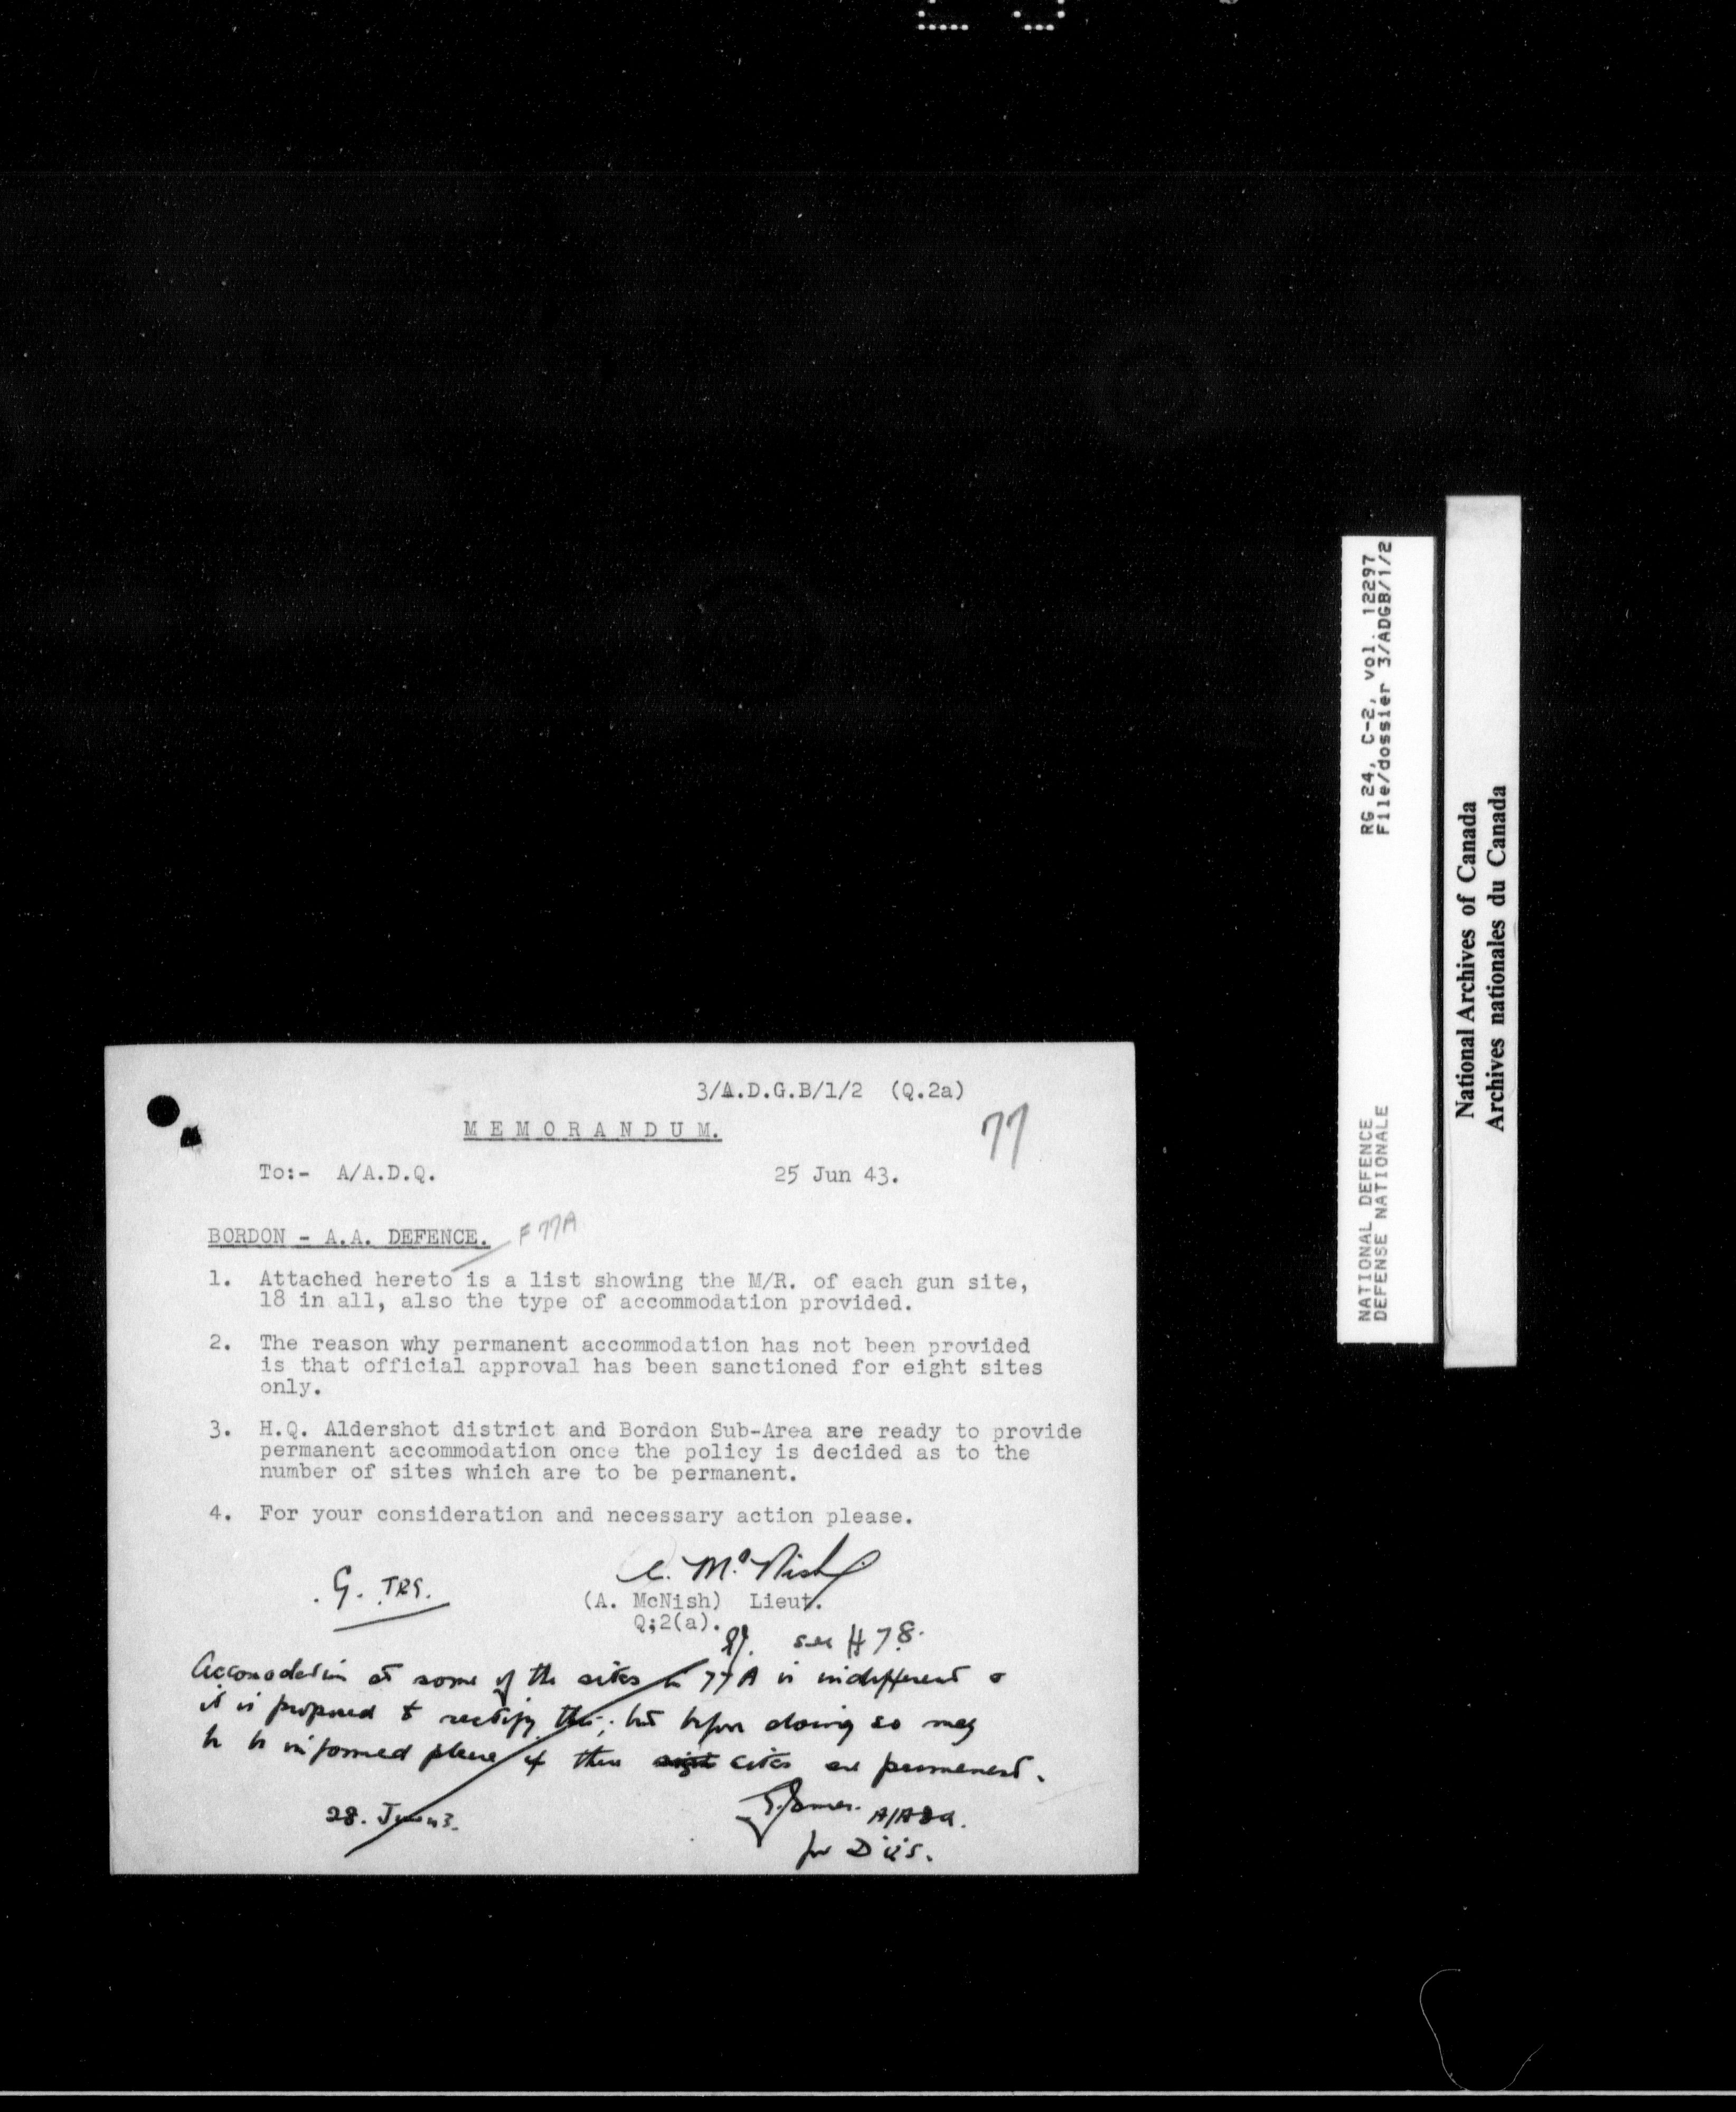 3/A.D.G.B/1/2 (Q.2a)
MEMORANDUM.
77
To:- A/A.D.Q. 25 Jun 43.
BORDON - A.A. DEFENCE. F 77A
1. Attached hereto is a list showing the M/R. of each gun site,
18 in all, also the type of accommodation provided.
2. The reason why permanent accommodation has not been provided
is that official approval has been sanctioned for eight sites
only.
3. H.Q. Aldershot district and Bordon Sub-Area are ready to provide
permanent accommodation once the policy is decided as to the
number of sites which are to be permanent.
4. For your consideration and necessary action please.
G. TRG.
A. McNish
(A. McNish) Lieut.
Q;2(a).
see 78.
Accomodation at some of the sites in 77A is indifferent &
it is proposed to rectify this; but before doing so may
be informed please if these sites are permanent.
28. June 43.
for
RG 24, C-2, vol. 12297
File/dossier 3/ADGB/1/2
NATIONAL DEFENCE
DEFENSE NATIONALE
National Archives of Canada
Archives nationales du Canada